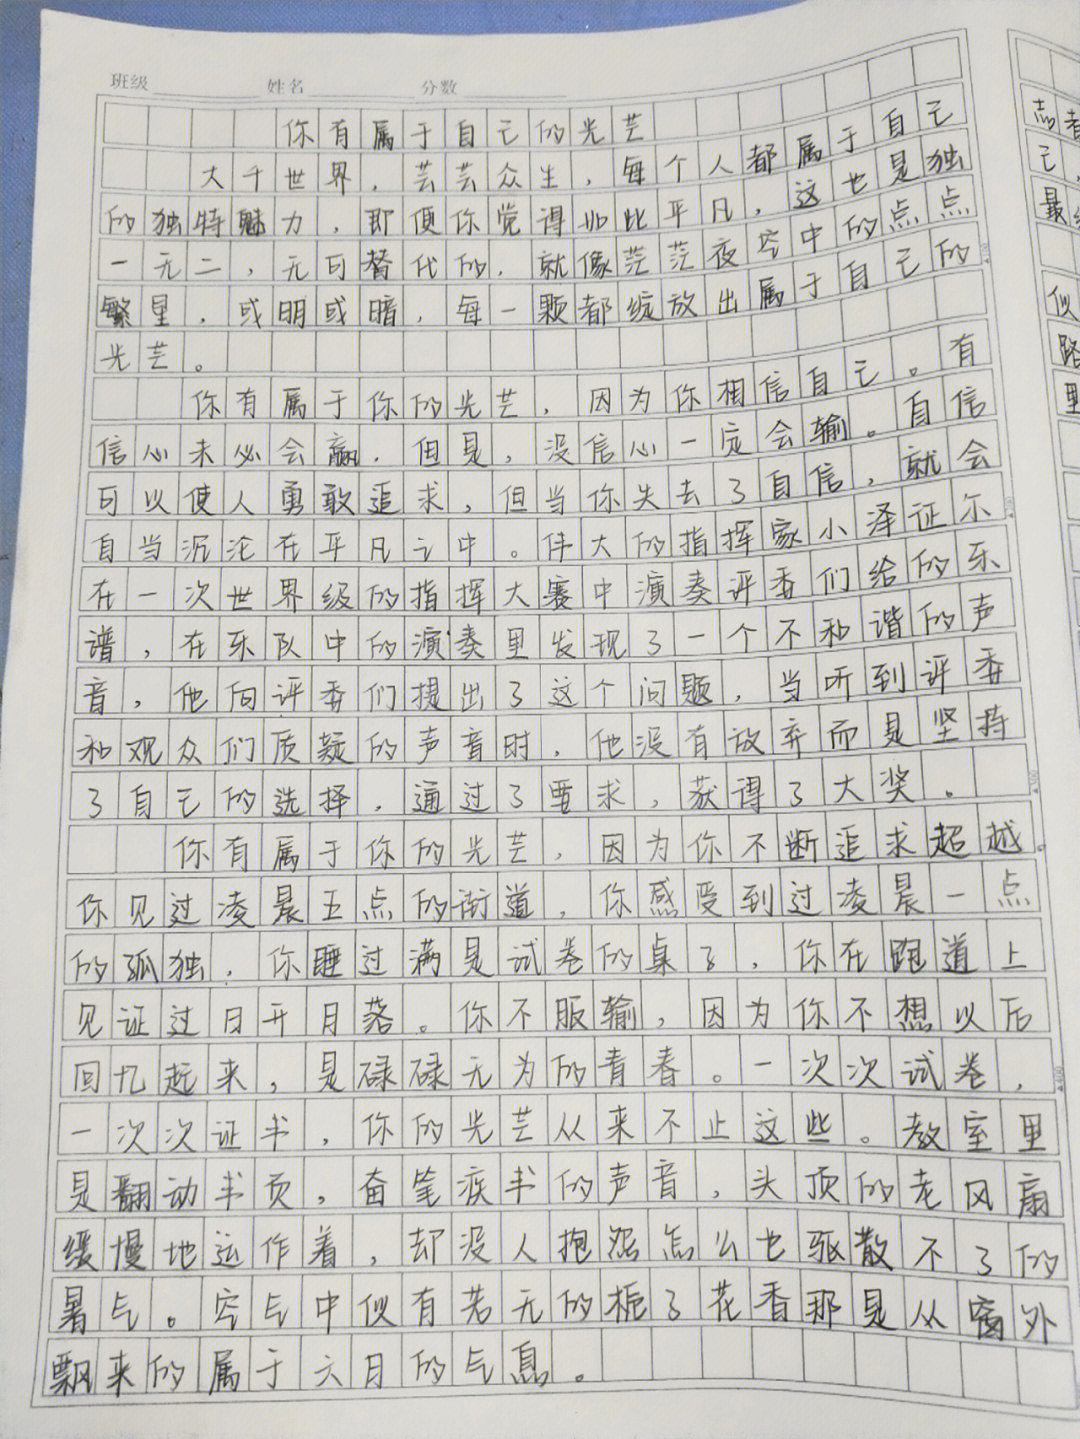 班级 姓名 分数
你有属于自己的光芒
大千世界，芸芸众生，每个人都属于自己
的独特魅力，即便你觉得如此平凡，这也是独
一无二，无可替代的，就像茫茫夜空中的点点
繁星，或明或暗，每一颗都绽放出属于自己的
光芒。
你有属于你的光芒，因为你相信自己。有
信心未必会赢，但是，没信心一定会输。自信
可以使人勇敢追求，但当你失去了自信，就会
自当沉沦在平凡之中。伟大的指挥家小泽证尔
在一次世界级的指挥大赛中演奏评委们给的乐
谱，在乐队中的演奏里发现了一个不和谐的声
音，他向评委们提出了这个问题，当听到评委
和观众们质疑的声音时，他没有放弃而是坚持
了自己的选择，通过了要求，获得了大奖。
你有属于你的光芒，因为你不断追求超越
你见过凌晨五点的街道，你感受到过凌晨一点
的孤独，你睡过满是试卷的桌子，你在跑道上
见证过日开月落。你不服输，因为你不想以后
回忆起来，是碌碌无为的青春。一次次试卷，
一次次证书，你的光芒从来不止这些。教室里
是翻动书页，奋笔疾书的声音，头顶的老风扇
缓慢地运作着，却没人抱怨怎么也驱散不了的
暑气。空气中似有若无的栀子花香那是从窗外
飘来的属于六月的气息。
志者
己，
最
似
路
里